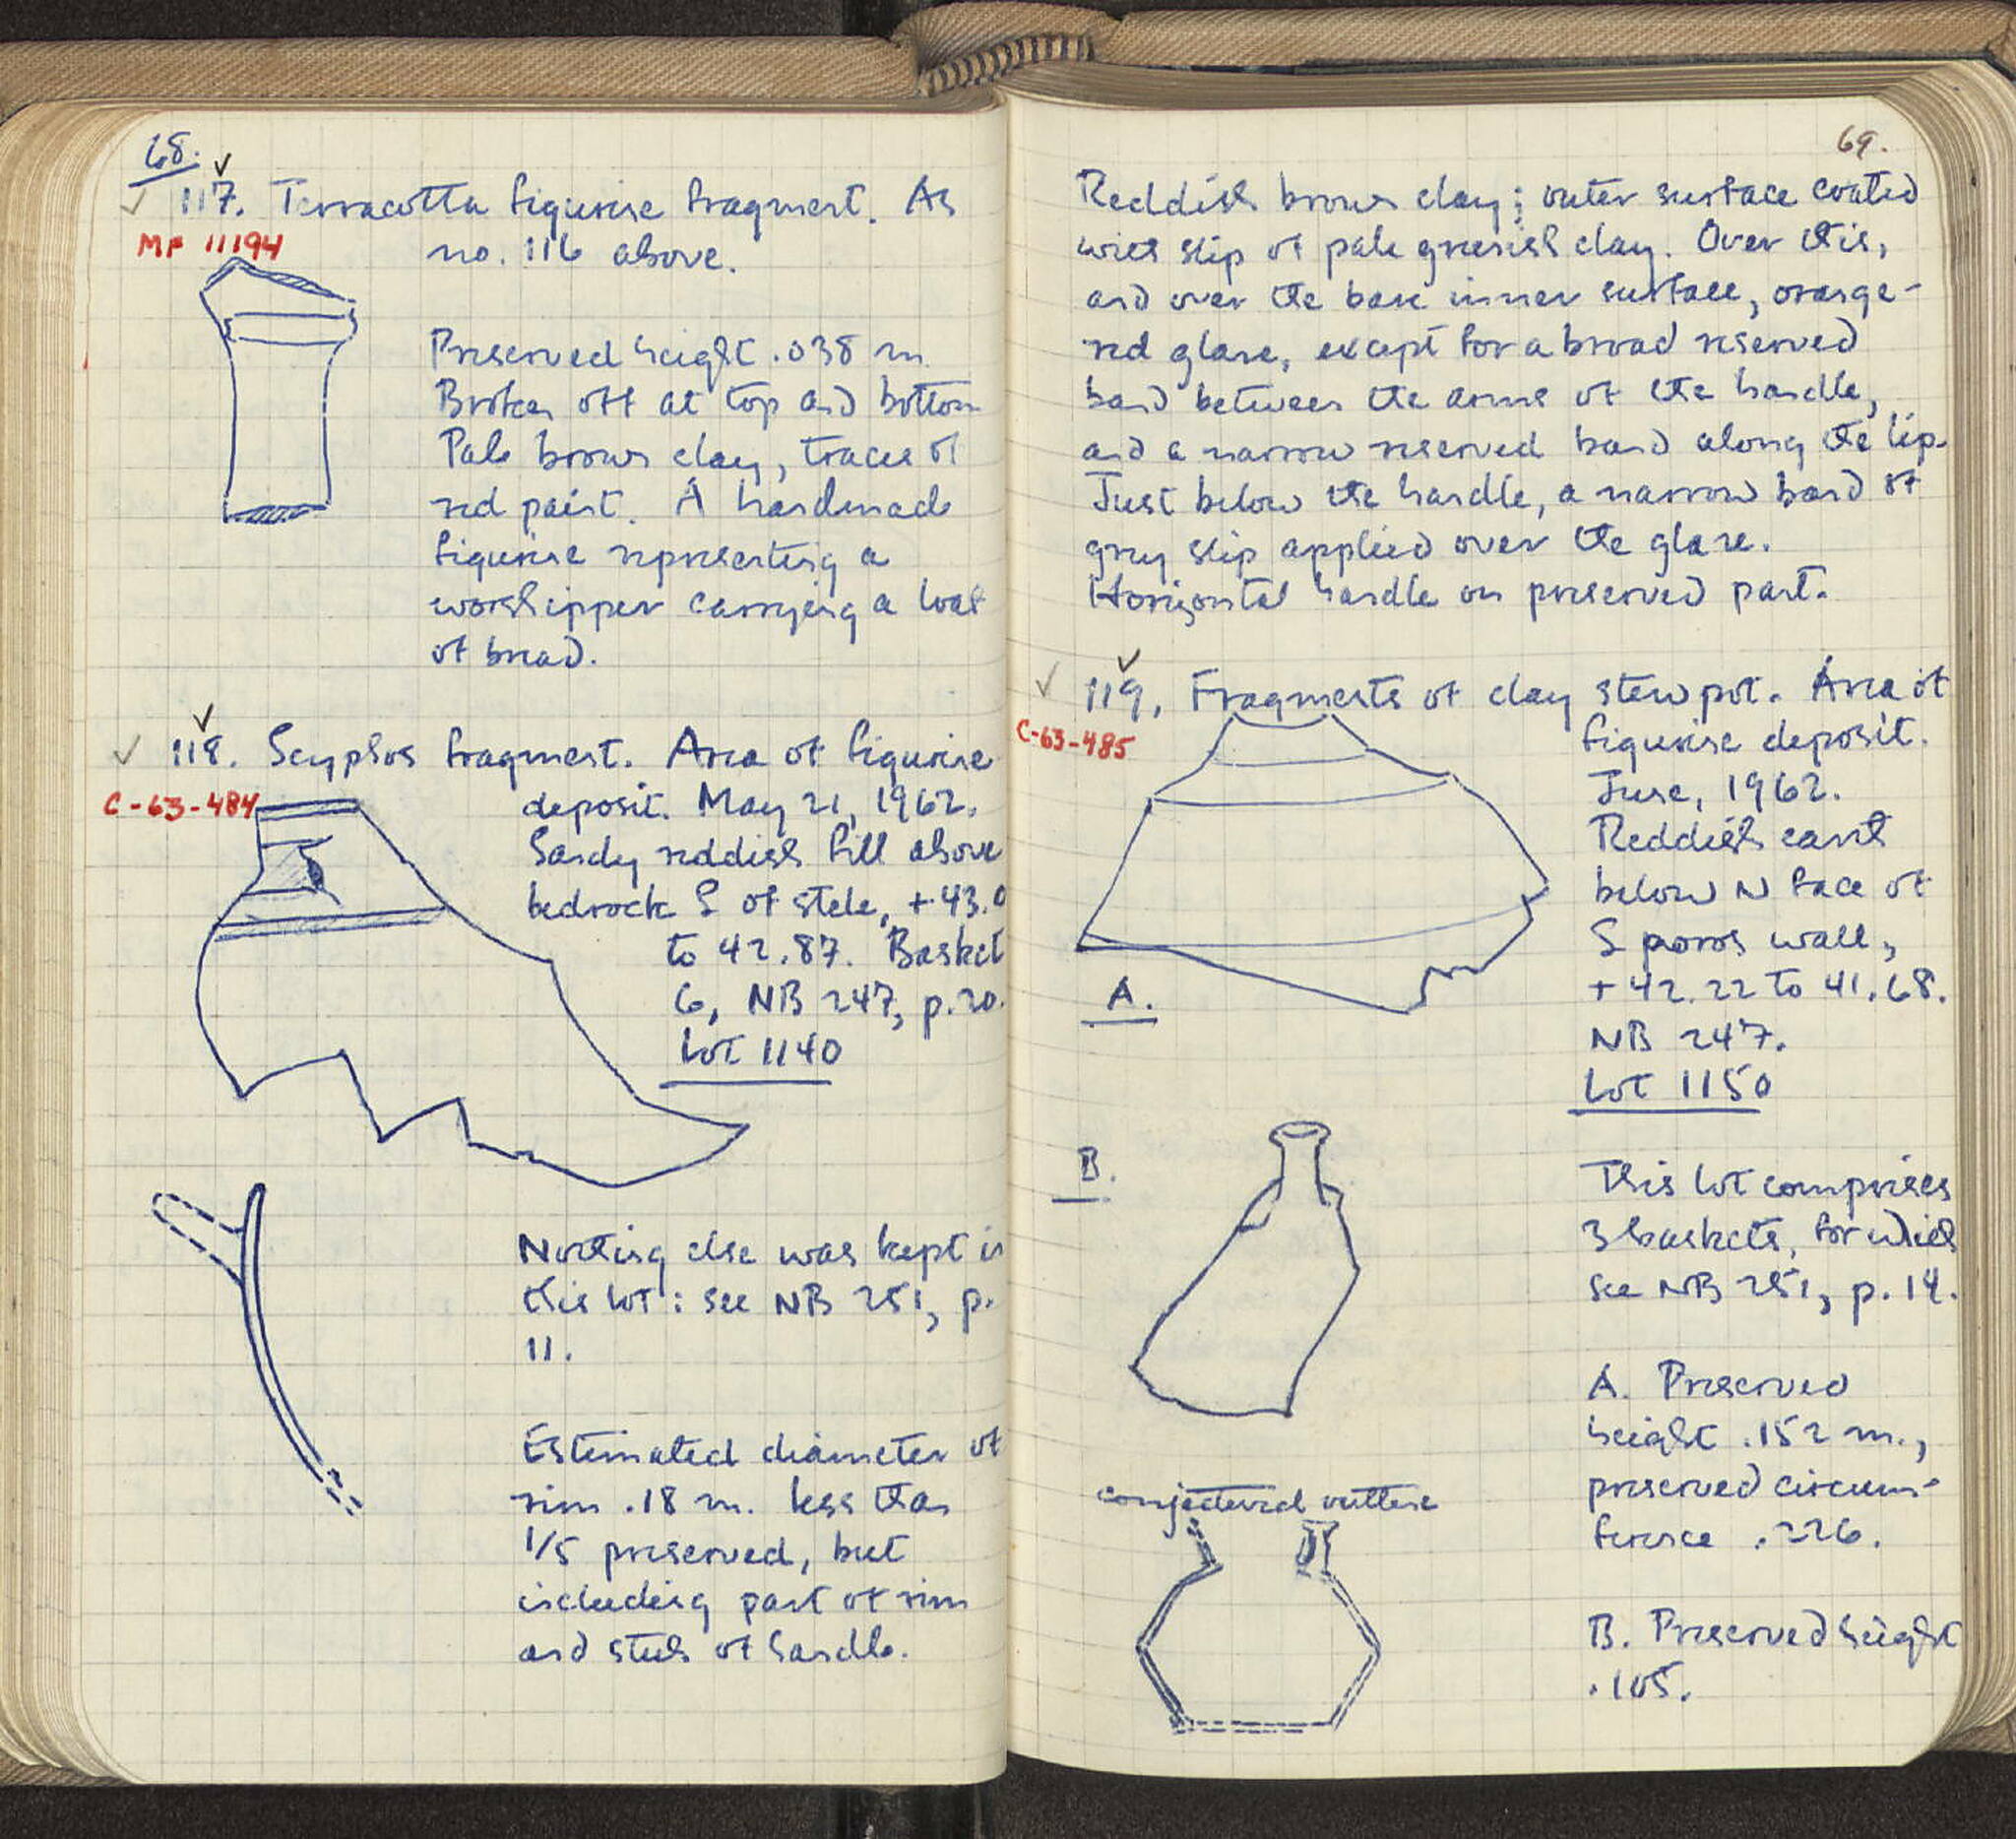 68.
117. Terracotta figurine fragment. As
MF 11194
no. 116 above.
Preserved height .038 m.
Broken off at top and bottom
Pale brown clay, traces of
red paint. A handmade
figurine representing a
worshipper carrying a loaf
of bread.
118. Scyphos fragment. Area of figurine
C-63-484
deposit. May 21, 1962.
Sandy reddish fill above
bedrock S of stele, +43.0
to 42.87. Basket
6, NB 247, p. 20.
Lot 1140
Nothing else was kept in
this lot: see NB 251, p.
11.
Estimated diameter of
rim .18 m. Less than
1/5 preserved, but
including part of rim
and stub of handle.
69.
Reddish brown clay; outer surface coated
with slip of pale greenish clay. Over this,
and over the bare inner surface, orange-
red glaze, except for a broad reserved
band between the arms of the handle,
and a narrow reserved band along the lip.
Just below the handle, a narrow band of
grey slip applied over the glaze.
Horizontal handle on preserved part.
119. Fragments of clay stewpot. Area of
C-63-485
figurine deposit.
June, 1962.
Reddish earth
below N face of
S poros wall,
+42.22 to 41.68.
NB 247.
Lot 1150
A.
B.
This lot comprises
3 baskets, for which
see NB 251, p. 14.
A. Preserved
height .152 m.,
preserved circum-
ference .226.
B. Preserved height
.105.
conjectured outline